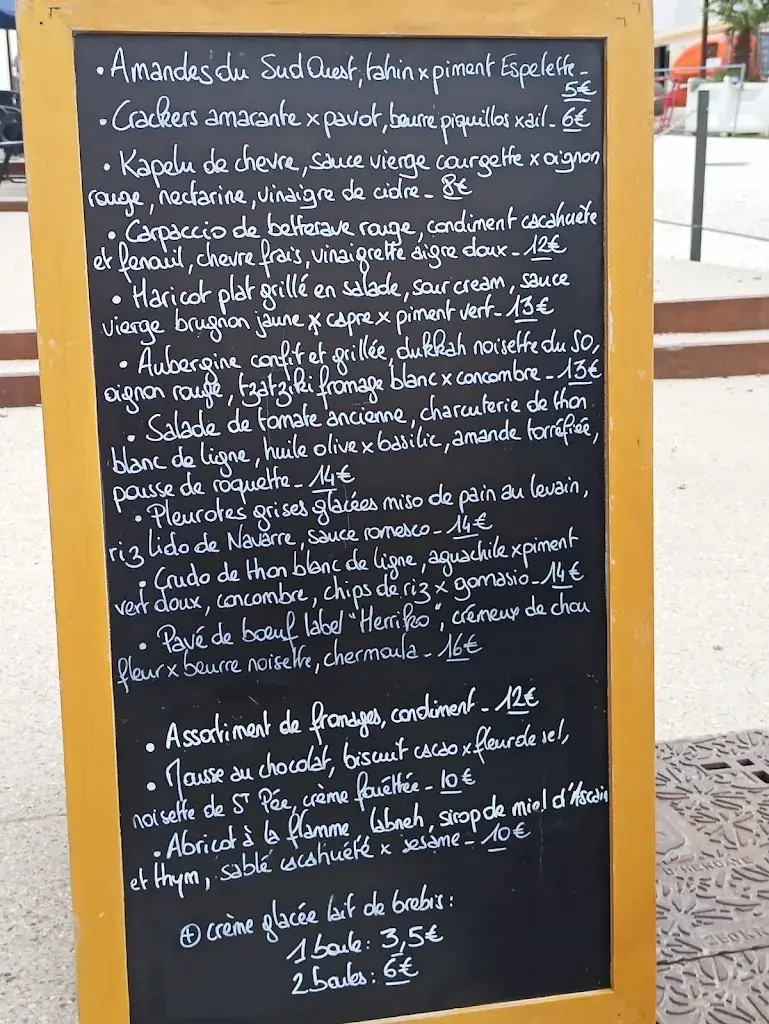 • Amandes du Sud Ouest, tahin x piment Espelette -
5€
• Crackers amarante x pavot, beurre piquillos x ail - 6€
• Kapelu de chevre, sauce vierge courgette x oignon
rouge, nectarine, vinaigre de cidre - 8€
• Carpaccio de betterave rouge, condiment cacahuète
et fenouil, chevre frais, vinaigrette aigre doux - 12€
• Haricot plat grillé en salade, sour cream, sauce
vierge brugnon jaune x capre x piment vert - 13€
• Aubergine confit et grillée, dukkah noisette du SO,
oignon rouge, tzatziki fromage blanc x concombre - 13€
• Salade de tomate ancienne, charcuterie de thon
blanc de ligne, huile olive x basilic, amande torréfiée,
pousse de roquette - 14€
• Pleurotes grises glacées miso de pain au levain,
riz lido de Navarre, sauce romesco - 14€
• Crudo de thon blanc de ligne, aguachile x piment
vert doux, concombre, chips de riz x gomasio - 14€
• Pavé de boeuf label "Herriko", crémeux de chou
fleur x beurre noisette, chermoula - 16€
• Assortiment de fromages, condiment - 12€
• Mousse au chocolat, biscuit cacao x fleur de sel,
noisette de St Pée, crème fouéttée - 10€
• Abricot à la flamme, labneh, sirop de miel d'Ascain
et thym, sablé cacahuété x sesame - 10€
⊕ crème glacée lait de brebis :
1 boule : 3,5€
2 boules : 6€